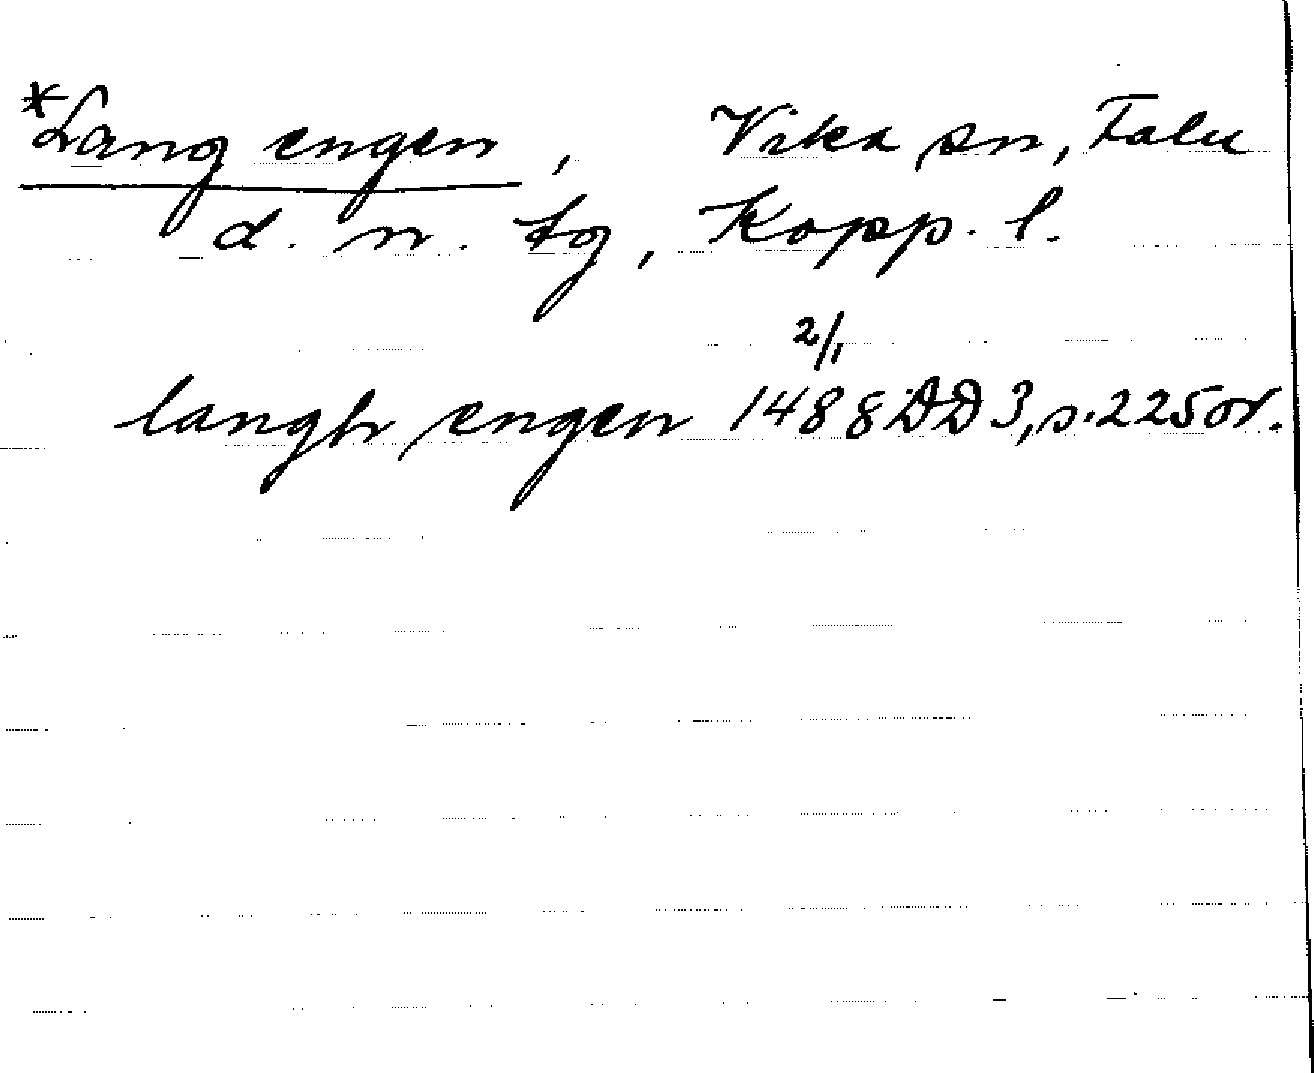 *Lang engen, Vika sn, Falu
d. n. tg, Kopp. l.
2/1
langh engen 1488 DD 3, s. 225 or.